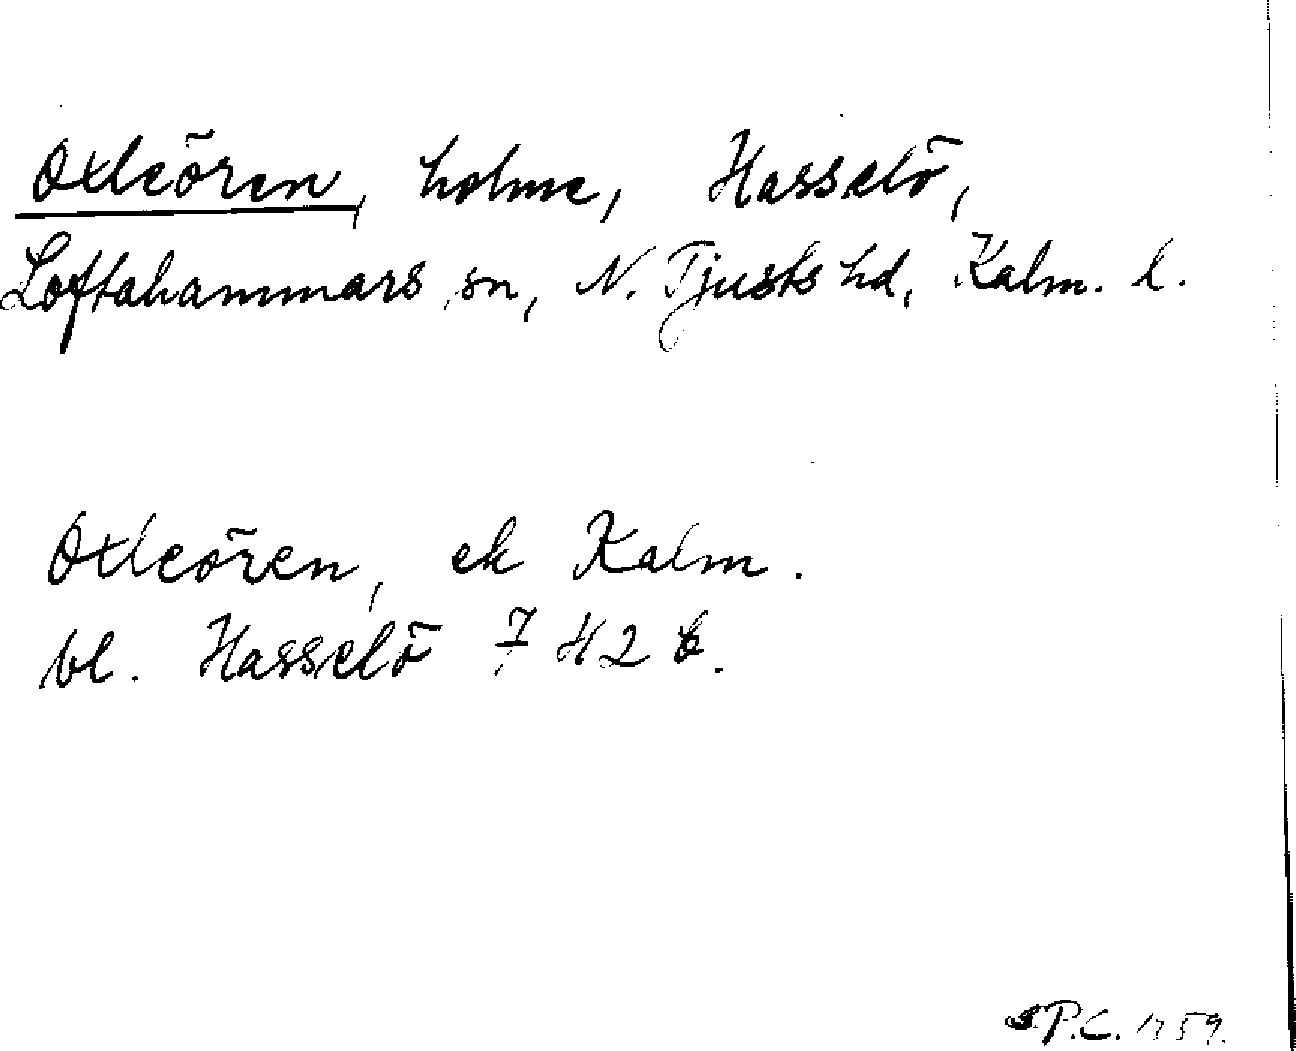 Oxleören, holme, Hasselö,
Loftahammars sn, N. Tjusts hd, Kalm. l.
Oxleören, ek Kalm.
bl. Hasselö 7 H2 b.
P.C. 1959.